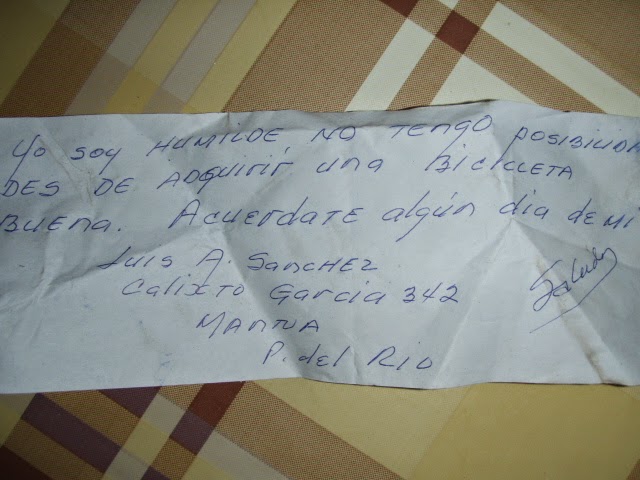 Yo soy HUMILDE NO TENGO POSIBILIDA
DES DE ADQUIRIR una BICICLETA
BUENA. ACUERDATE algún dia de MI
Luis A. SANCHEZ
Calixto Garcia 342
MANTUA
P. del Rio
Saludos